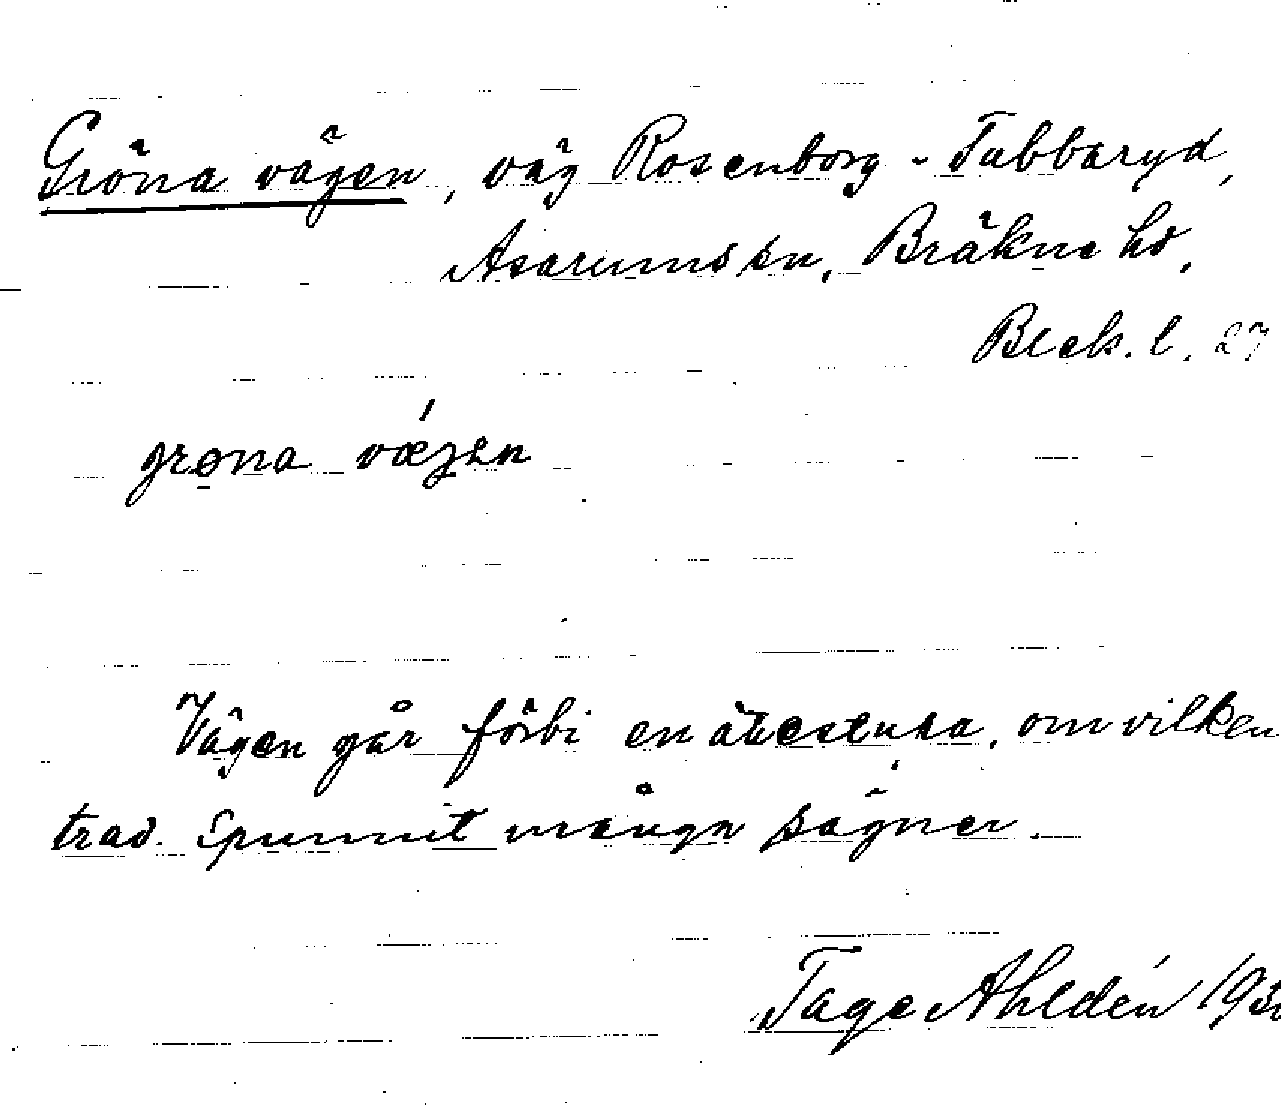 Gröna vägen, väg Rosenborg - Tabbaryd,
Asarums sn, Bräkne hd,
Blek. l. 27
grøna vægen
Vägen går förbi en ättestupa, om vilken
trad. spunnit många sägner.
Tage Ahldén 193